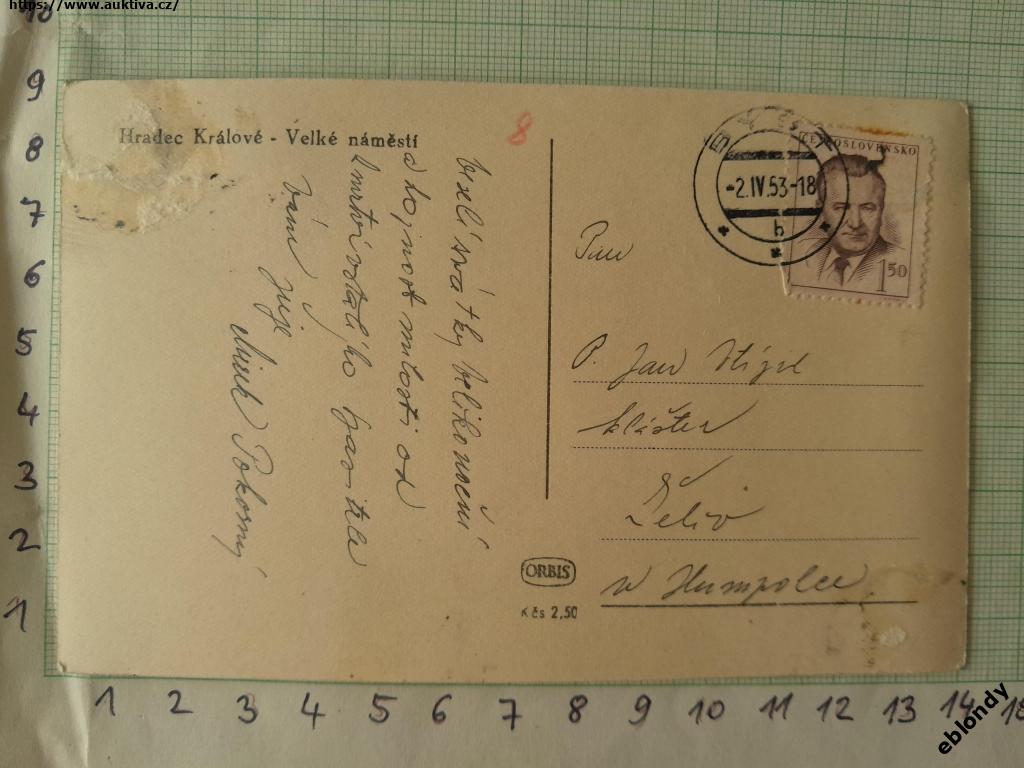 https://www.auktiva.cz/
10
9
8
7
6
5
4
3
2
1
Hradec Králové - Velké náměstí
8
Veselé svátky velikonoční
a hojnost milosti od
zmrtvýchvstalého Spasitele
Vám přeje
Mirek Pokorný
-2.IV.53-18
b
ČESKOSLOVENSKO
1 50
Pan
P. Jan
klášter
Želiv
u Humpolce
ORBIS
Kčs 2,50
1 2 3 4 5 6 7 8 9 10 11 12 13 14
eblondy